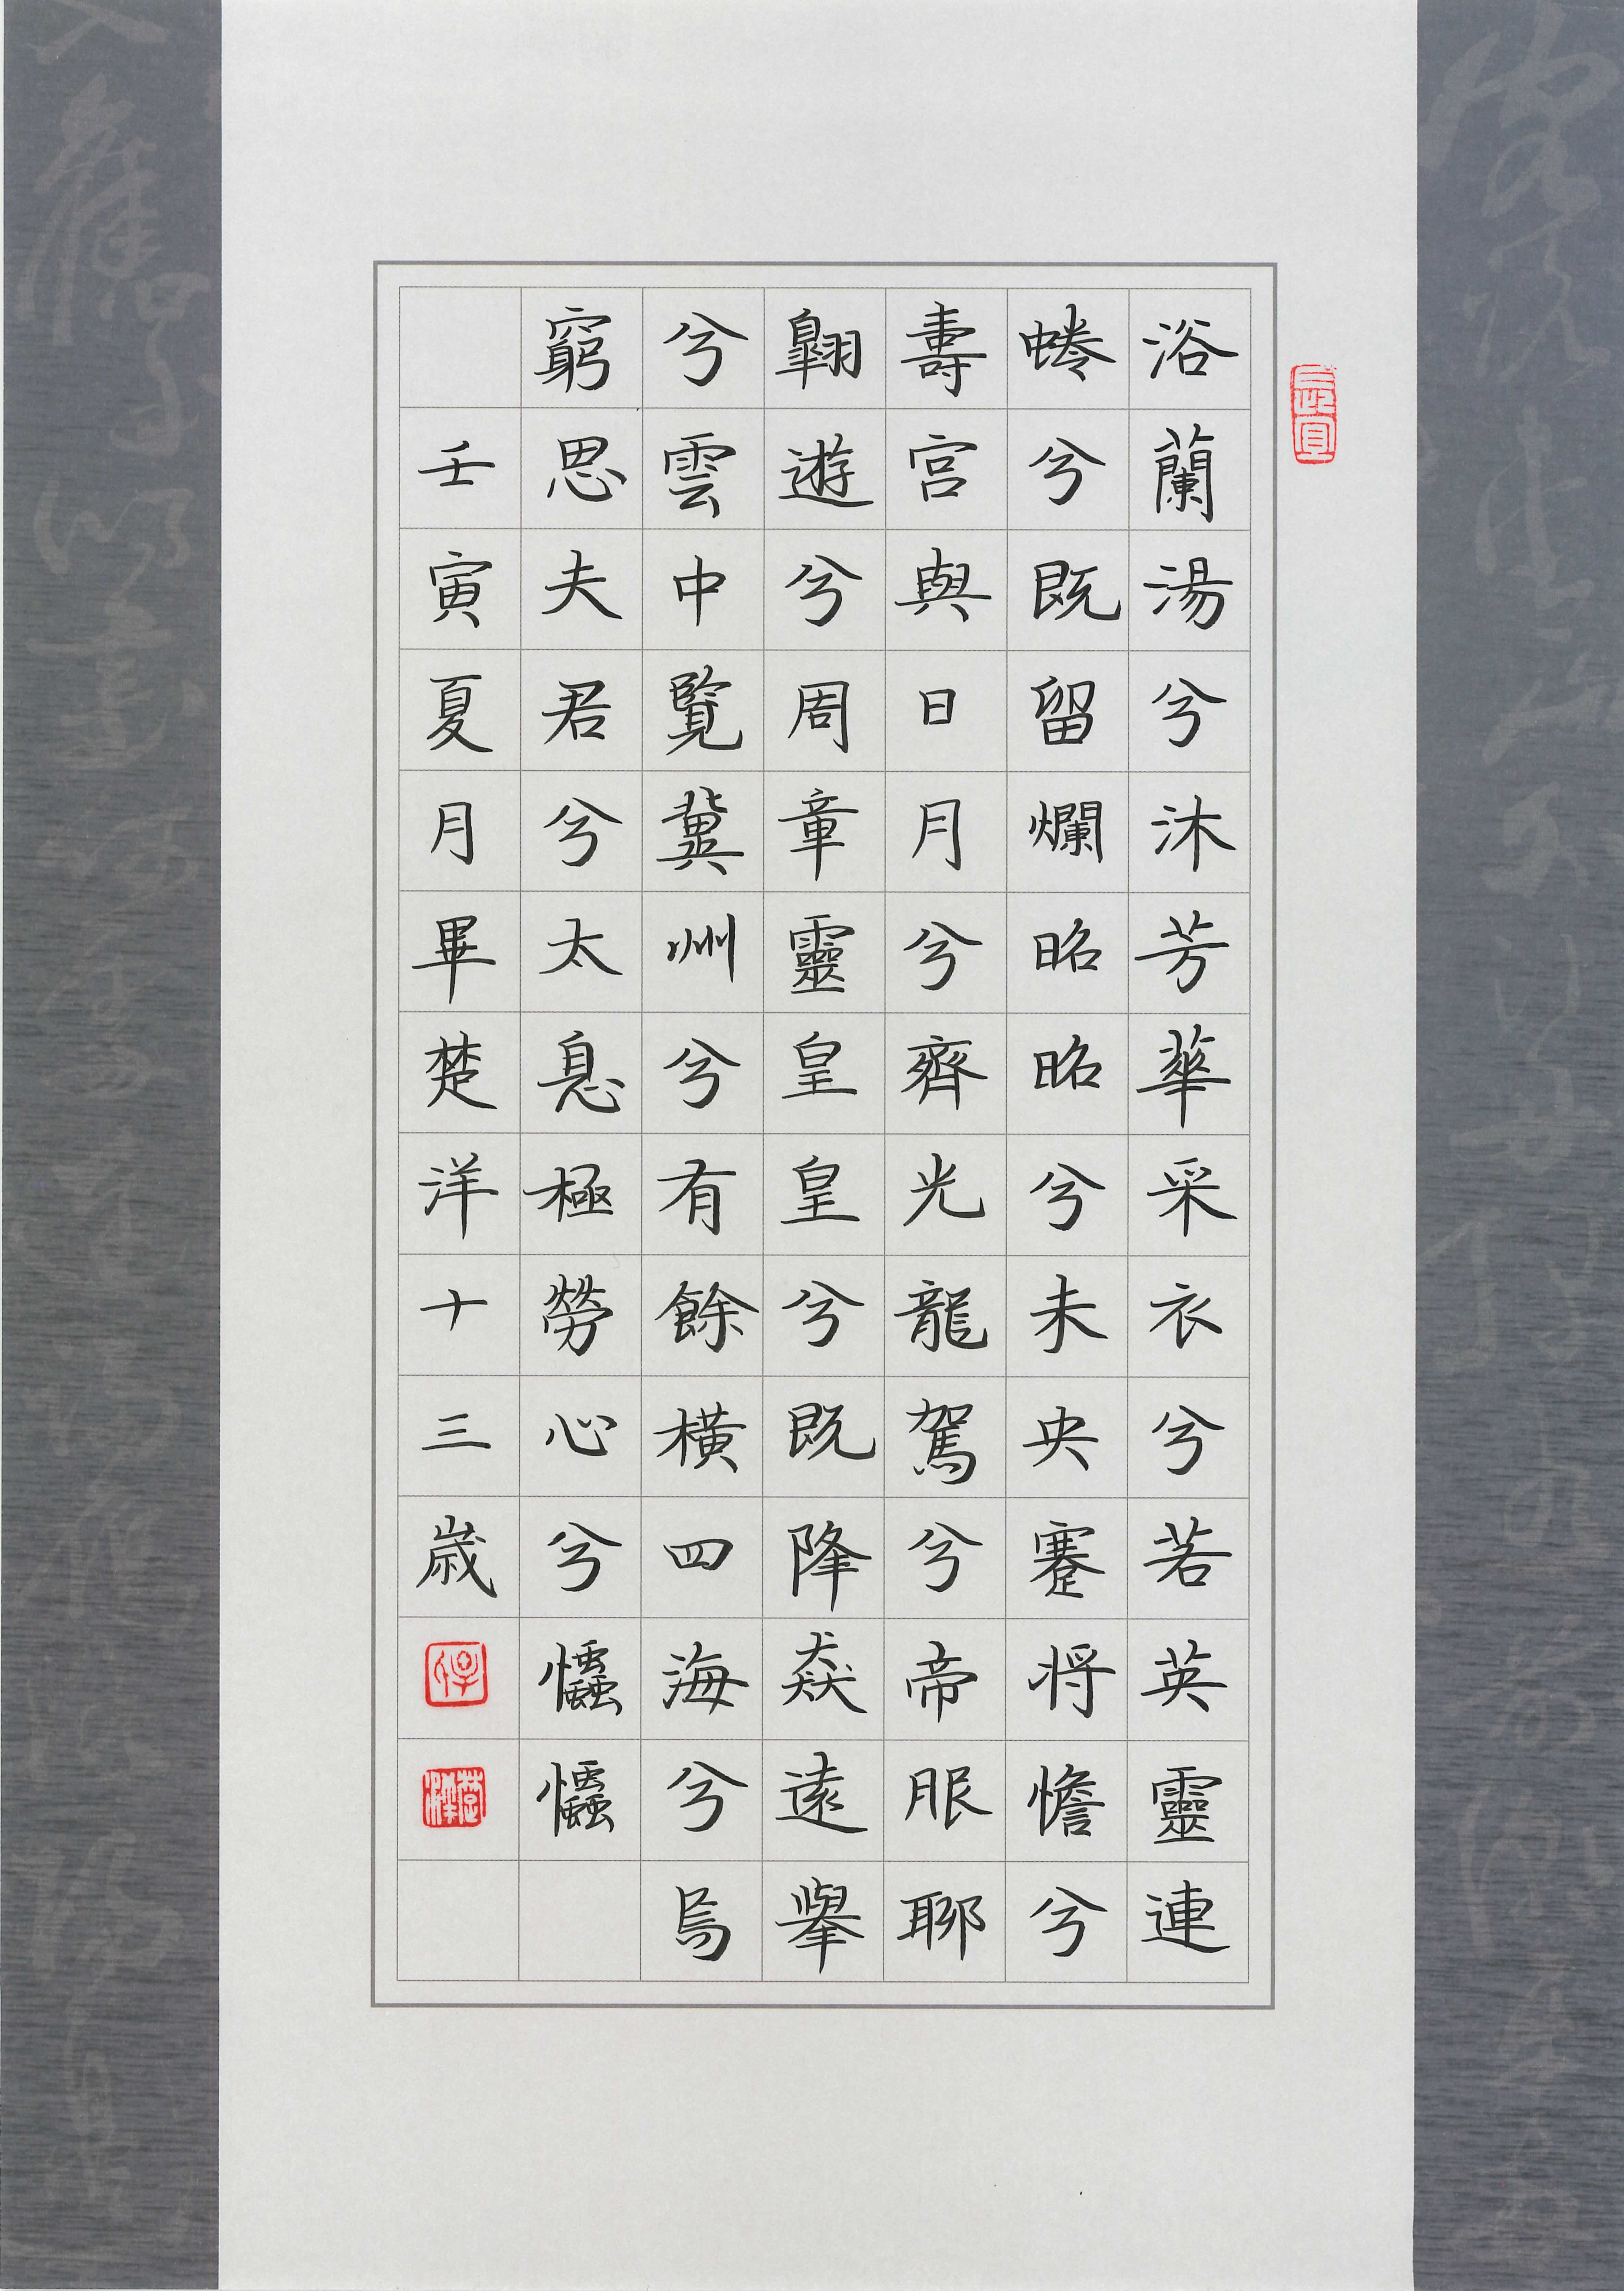 浴蘭湯兮沐芳華采衣兮若英靈連
蜷兮既留爛昭昭兮未央蹇将憺兮
壽宮與日月兮齊光龍駕兮帝服聊
翺遊兮周章靈皇皇兮既降猋遠舉
兮雲中覽冀州兮有餘橫四海兮焉
窮思夫君兮太息極勞心兮忡忡
壬寅夏月畢楚洋十三歲